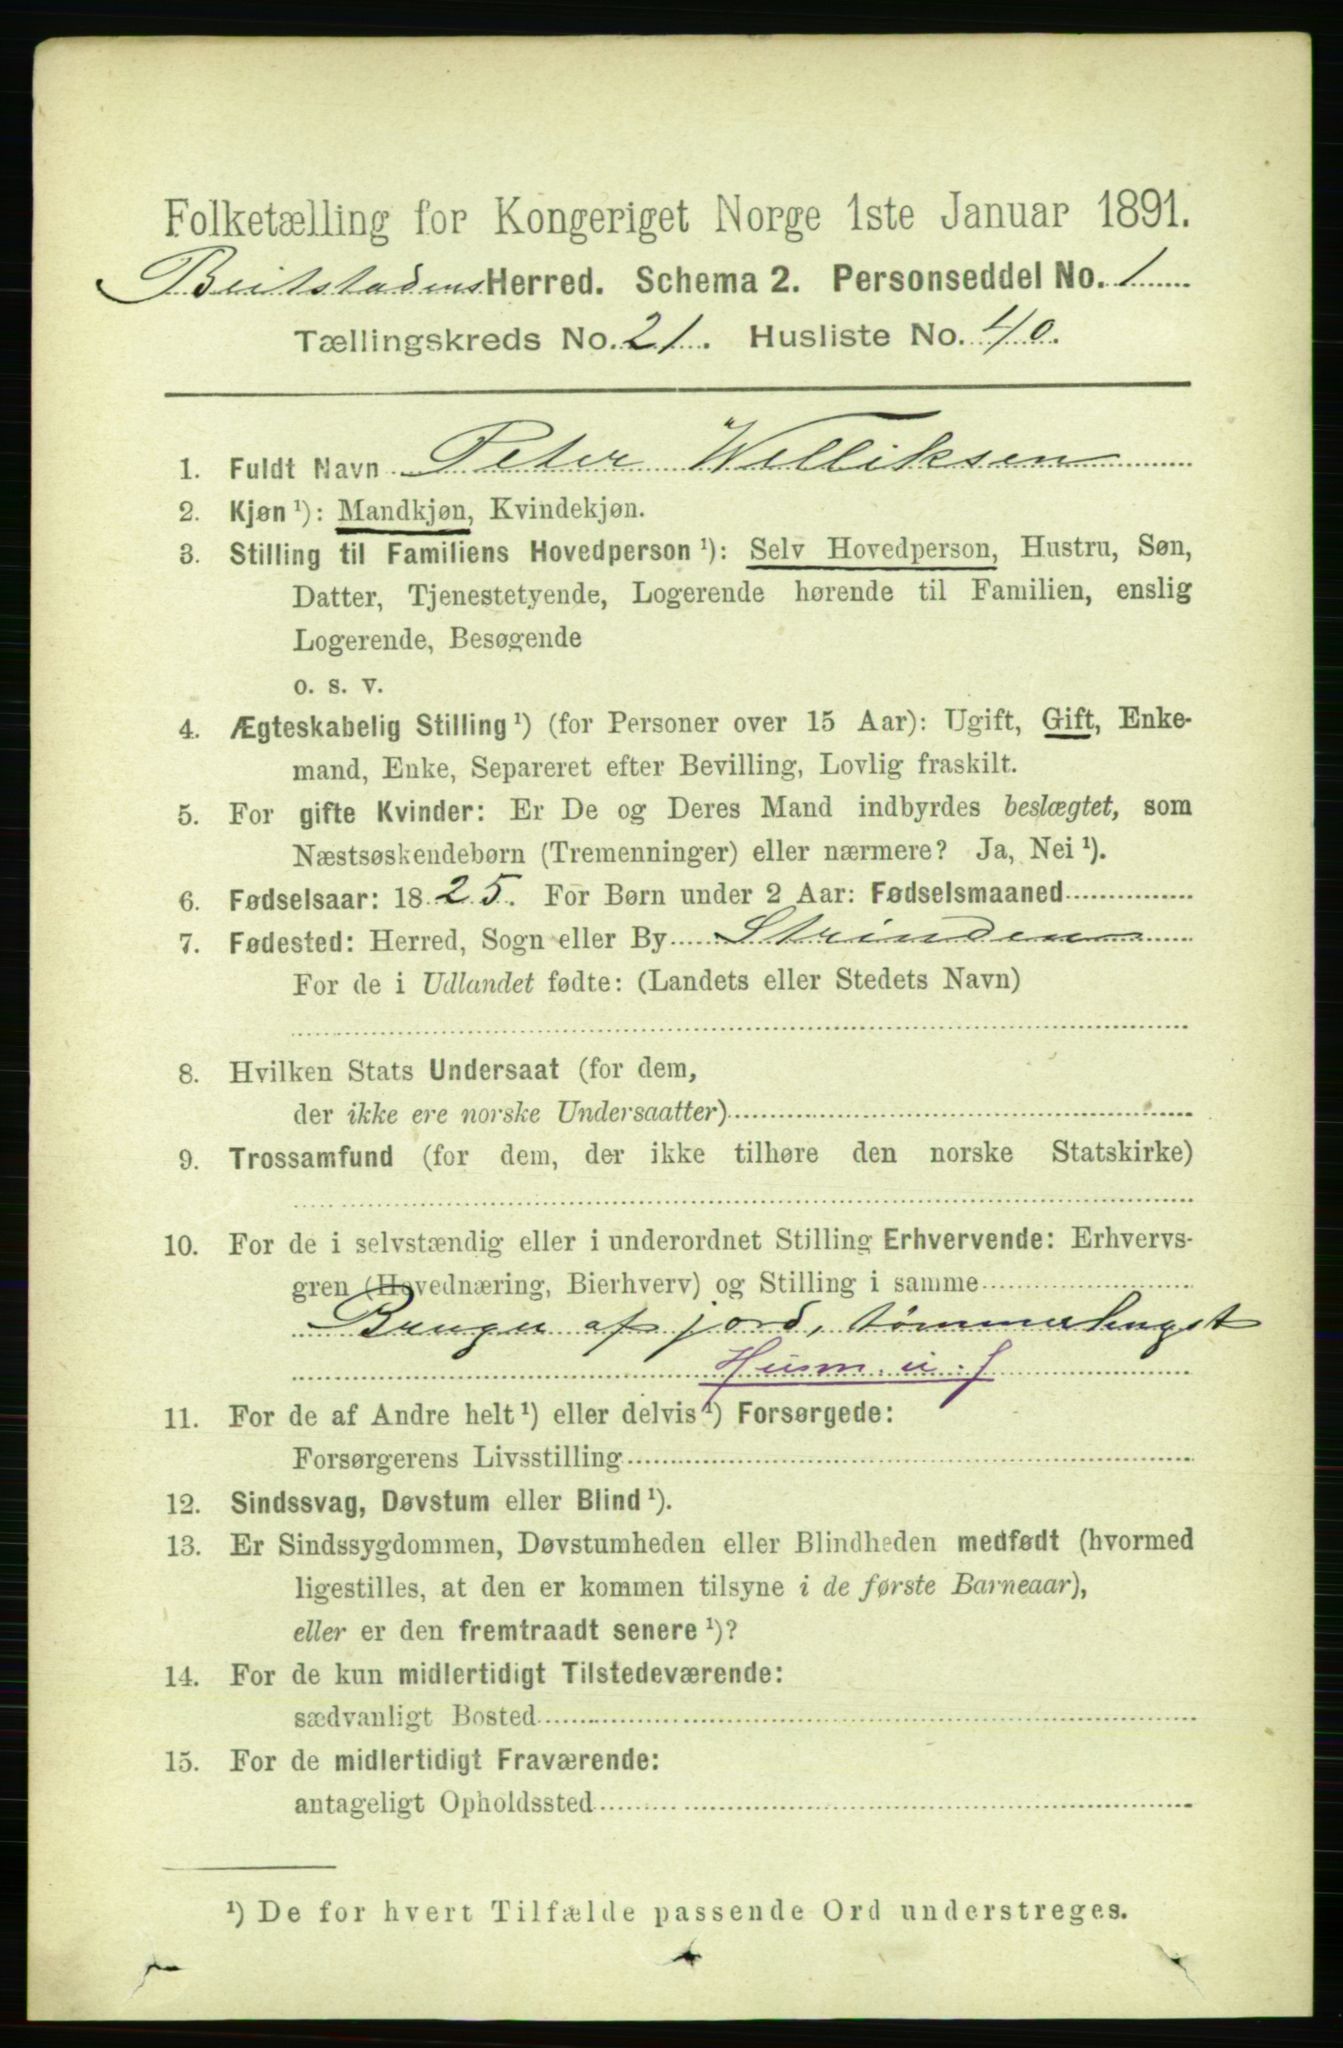 Folketælling for Kongeriget Norge 1ste Januar 1891.
Beitstadens Herred. Schema 2. Personseddel No. 1
Tællingskreds No. 21. Husliste No. 40.
1. Fuldt Navn Peter Welliksen
2. Kjøn ¹): Mandkjøn, Kvindekjøn.
3. Stilling til Familiens Hovedperson ¹): Selv Hovedperson, Hustru, Søn,
Datter, Tjenestetyende, Logerende hørende til Familien, enslig
Logerende, Besøgende
o. s. v.
4. Ægteskabelig Stilling ¹) (for Personer over 15 Aar): Ugift, Gift, Enke-
mand, Enke, Separeret efter Bevilling, Lovlig fraskilt.
5. For gifte Kvinder: Er De og Deres Mand indbyrdes beslægtet, som
Næstsøskendebørn (Tremenninger) eller nærmere? Ja, Nei ¹).
6. Fødselsaar: 1825. For Børn under 2 Aar: Fødselsmaaned
7. Fødested: Herred, Sogn eller By Strinden
For de i Udlandet fødte: (Landets eller Stedets Navn)
8. Hvilken Stats Undersaat (for dem,
der ikke ere norske Undersaatter)
9. Trossamfund (for dem, der ikke tilhøre den norske Statskirke)
10. For de i selvstændig eller i underordnet Stilling Erhvervende: Erhvervs-
gren (Hovednæring, Bierhverv) og Stilling i samme
Bruger af jord, tømmerhugst
Husm. u. f
11. For de af Andre helt ¹) eller delvis ¹) Forsørgede:
Forsørgerens Livsstilling
12. Sindssvag, Døvstum eller Blind ¹).
13. Er Sindssygdommen, Døvstumheden eller Blindheden medfødt (hvormed
ligestilles, at den er kommen tilsyne i de første Barneaar),
eller er den fremtraadt senere ¹)?
14. For de kun midlertidigt Tilstedeværende:
sædvanligt Bosted
15. For de midlertidigt Fraværende:
antageligt Opholdssted
¹) De for hvert Tilfælde passende Ord understreges.